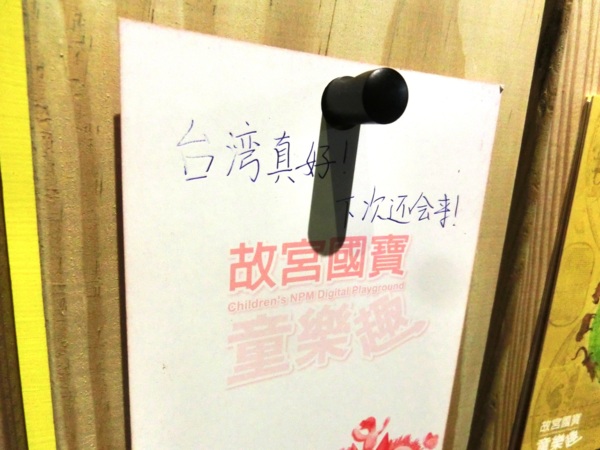 台湾真好!
下次还会来!
故宮國寶
Children's NPM Digital Playground
童樂趣
故宮國寶
童樂趣